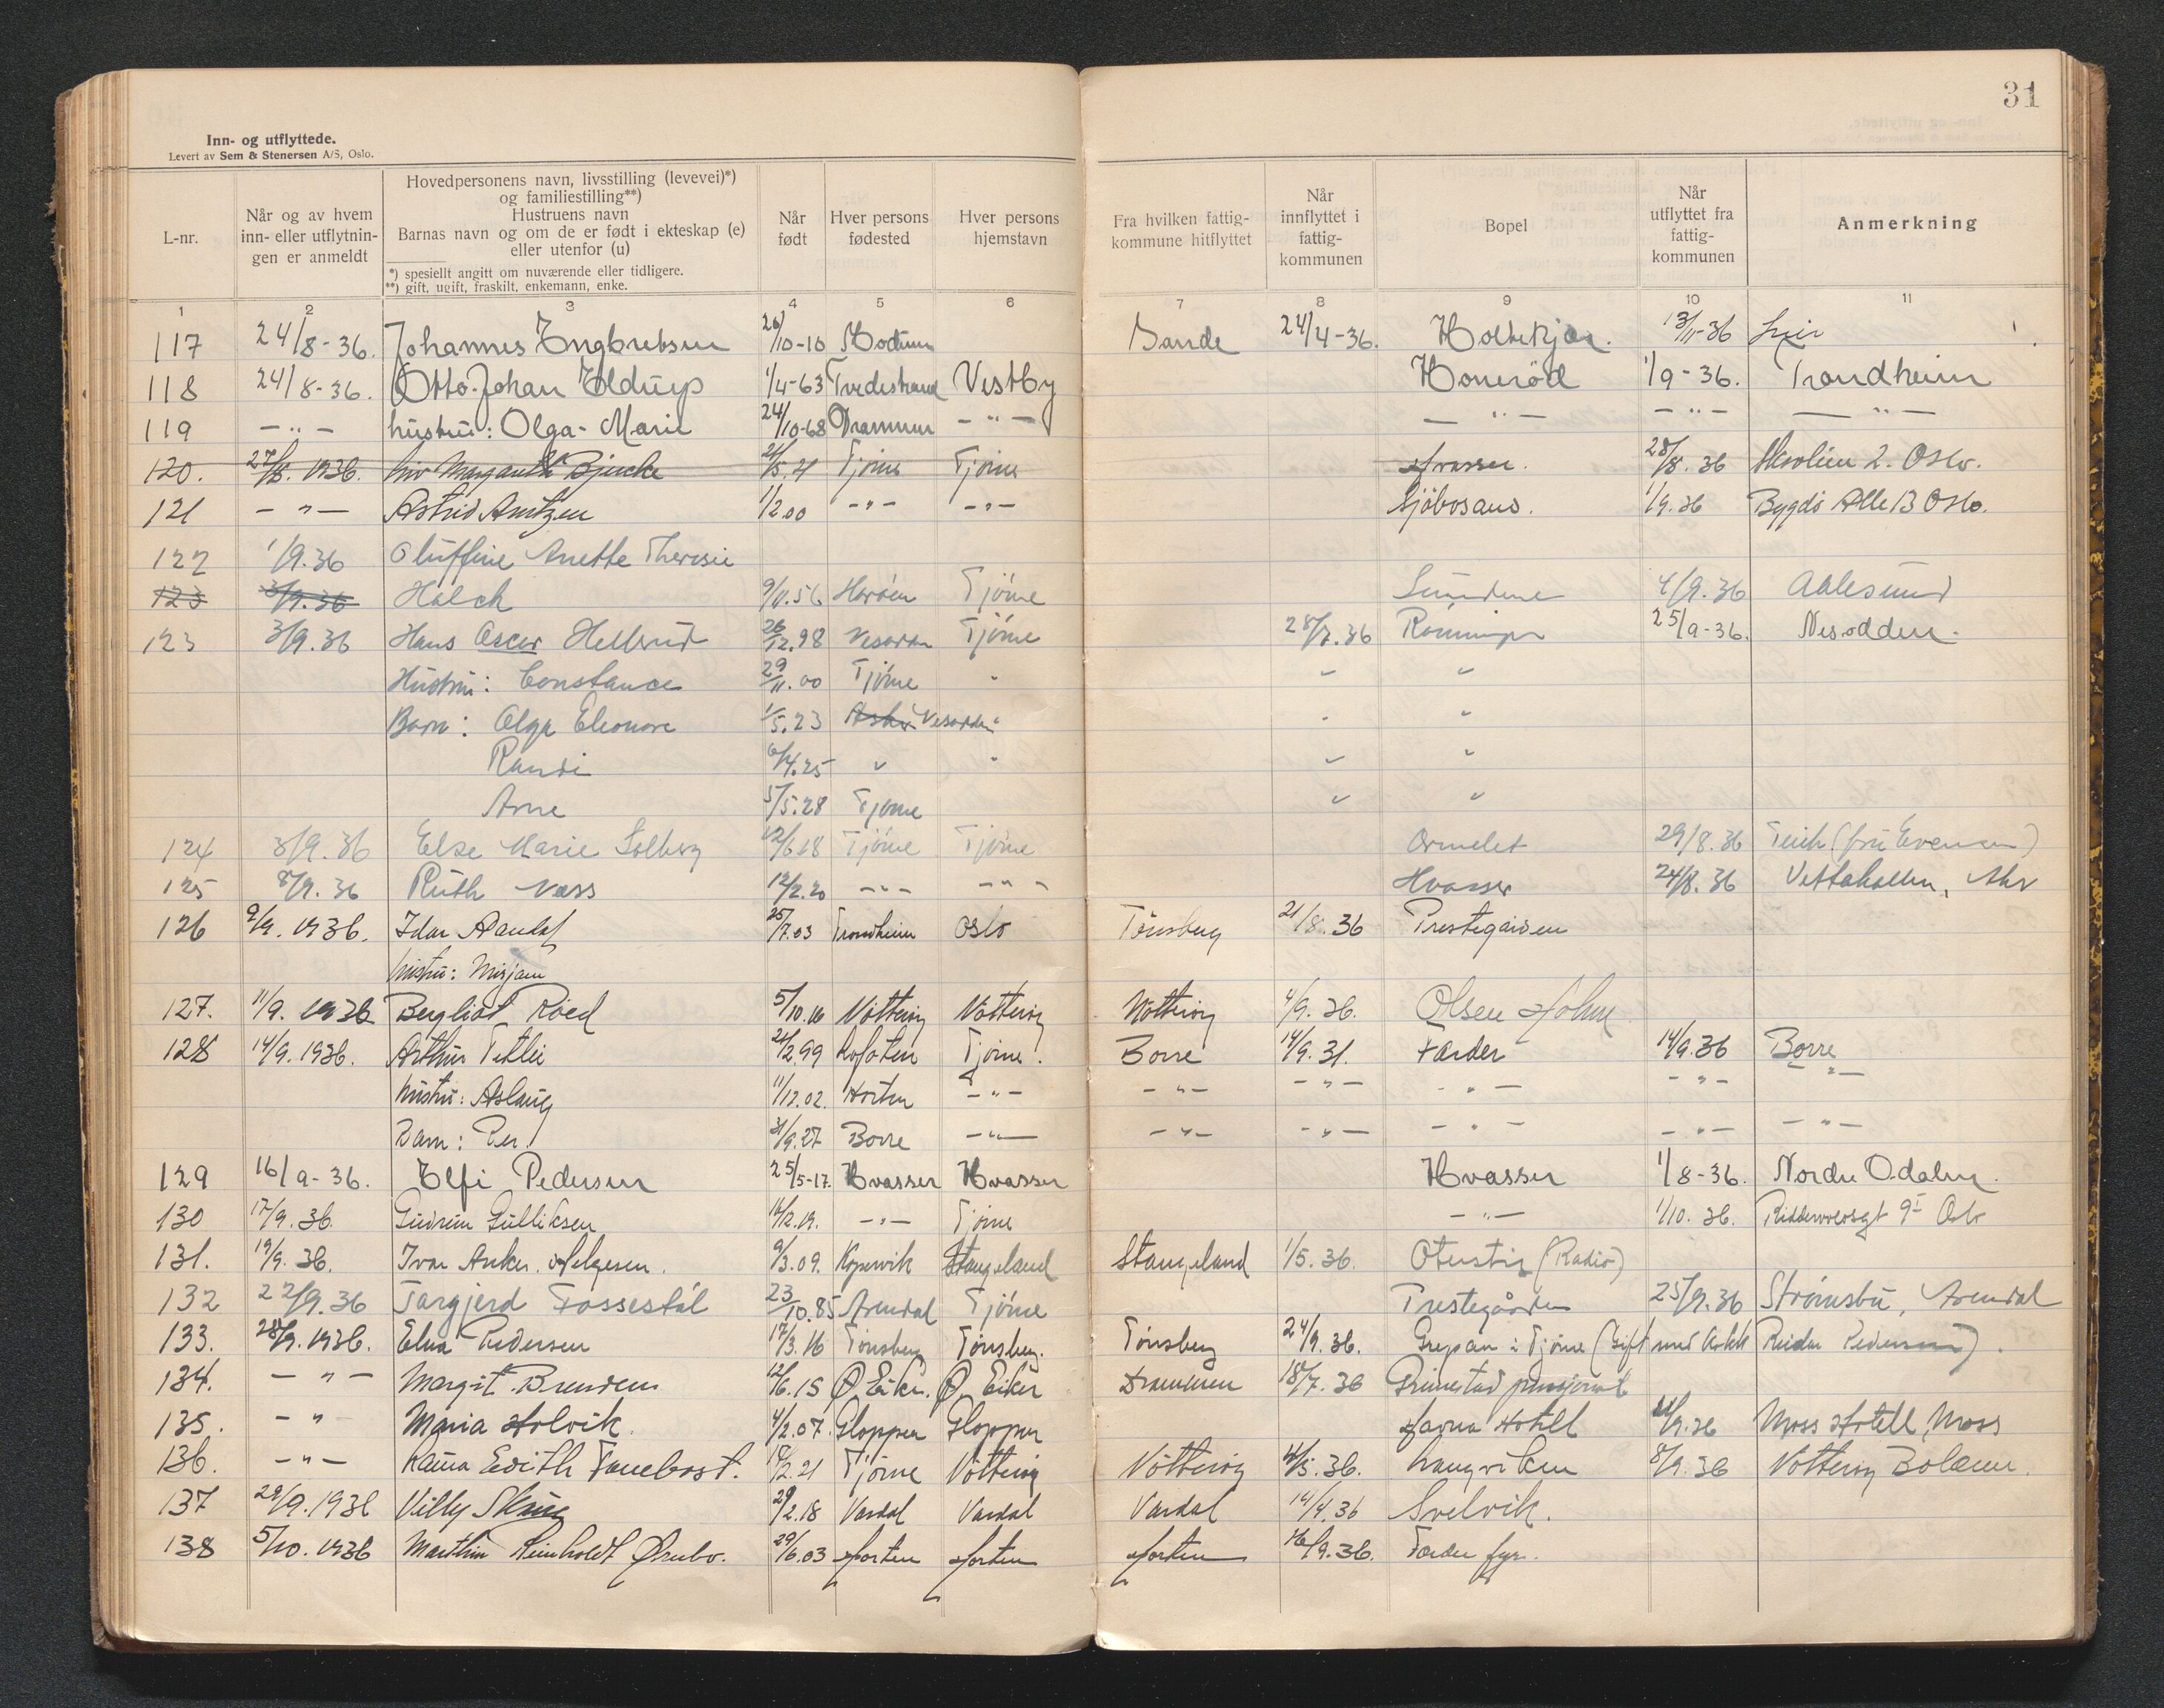 31
Inn- og utflyttede.
Levert av Sem & Stenersen A/S, Oslo.
L-nr. | Når og av hvem inn- eller utflytnin-gen er anmeldt | Hovedpersonens navn, livsstilling (levevei)*) og familiestilling**) Hustruens navn Barnas navn og om de er født i ekteskap (e) eller utenfor (u) *) spesiellt angitt om nuværende eller tidligere. **) gift, ugift, fraskilt, enkemann, enke. | Når født | Hver persons fødested | Hver persons hjemstavn | Fra hvilken fattig-kommune hitflyttet | Når innflyttet i fattig-kommunen | Bopel | Når utflyttet fra fattig-kommunen | Anmerkning
1 2 3 4 5 6 7 8 9 10 11
117 24/8-36. Johannes Engbretsen 26/10-10 Modum Sande 24/4-36. Holtekjær. 13/11-36 Lier
118 24/8-36. Otto Johan Eldrup 1/4-63 Tvedestrand Vestby Honerød 1/9-36. Trondheim
119 — " — hustru: Olga-Marie 24/10-68 Drammen — " — — " — — " — — " —
120. 27/8. 1936. Liv Margareth Bjercke 21/5. 21 Tjøme Tjøme Hvasser. 28/8. 36 2. Oslo.
121 — " — Astrid Arntzen 1/2 00 — " — — " — Sjøbosaus. 1/9. 36 Bygdø Alle 13 Oslo.
122 1/9.36 Oluffine Anette Theresie
123 3/9.36 Holch 9/11.56 Tjøme Sundene 4/9.36 Aalesund
123 3/9.36 Hans Oscar Hellerud 26/12.98 Nesodden Tjøme 28/7.36 Rønningen 25/9-36. Nesodden.
Hustru: Constance 29/11.00 Tjøme " " "
Barn: Olga Eleonore 1/5.23 Asker Nesodden " " "
Randi 6/4.25 " " " "
Arne 5/5.28 Tjøme " "
124 3/9.36 Else Marie Solberg 12/6.18 Tjøme Tjøme Ormelet 29/8.36 (fru Evensen)
125 8/9.36 Ruth Næss 12/2.20 — " — — " — Hvasser 24/8.36 Vettakollen, Aker
126 9/9. 1936. Idar Aandal 25/7.03 Trondheim Oslo Tønsberg 21/8.36 Prestegården
hustru: Mirjam
127. 11/9. 1936 Bergliot Røed 5/10.16 Nøtterøy Nøtterøy Nøtterøy 4/9. 36. Olsen Holme
128 14/9. 1936. Arthur Tetlie 24/2.99 Lofoten Tjøme. Borre 14/9. 31. Færder 14/9.36 Borre
hustru: Aslaug 11/12.02. Horten — " — — " — — " — — " — — " — — " —
Barn: Per. 31/9.27 Borre — " — — " — — " — — " — — " — — " —
129 16/9-36. Elfi Pedersen 25/5-17. Hvasser Hvasser Hvasser 1/8-36. Nordre Odalen.
130 17/9. 36. Gudrun Gulliksen 16/12.19. — " — Tjøme — " — 1/10. 36. Riddervoldsgt 9 Oslo
131. 19/9. 36. Ivar Anker Helgesen. 9/3.09. Kopervik Stangeland Stangeland 1/5.36. Oterstig (Radio)
132 22/9.36 Torgjerd Fossestøl 23/10.85 Arendal Tjøme Prestegården 25/9.36 Strømsbu, Arendal
133. 28/9. 1936. Elna Pedersen 17/3.16 Tønsberg Tønsberg. Tønsberg 24/9. 36. Grepan i Tjøme (Gift med Reidar Pedersen).
134. — " — Margit Brenden 12/6.15 Ø. Eiker. Ø. Eiker Drammen 18/7. 36 Grimestad pensjonat
135. — " Maria Holvik. 4/2.07. Gloppen Gloppen Havna Hotell /9.36 Moss Hotell, Moss
136. — " — Kaina Edith Fanebost. 18/2.21 Tjøme Nøtterøy Nøtterøy /5. 36. Langviken 8/9. 36 Nøtterøy Bolæren.
137 29/9.1936 Villy Skaug 29/2.18 Vardal Vardal Vardal 14/4.36 Svelvik.
138 5/10. 1936 Marthin Reinholdt Ørubo. 29/6.03 Horten Horten Horten 16/9.36. Færder fyr.